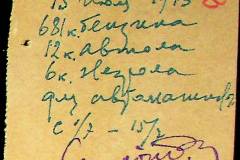 15 июля 1943
681 к. бензина
12 к. автола
6 к. нигрола
для автомашин
с 1/7 – 15/7